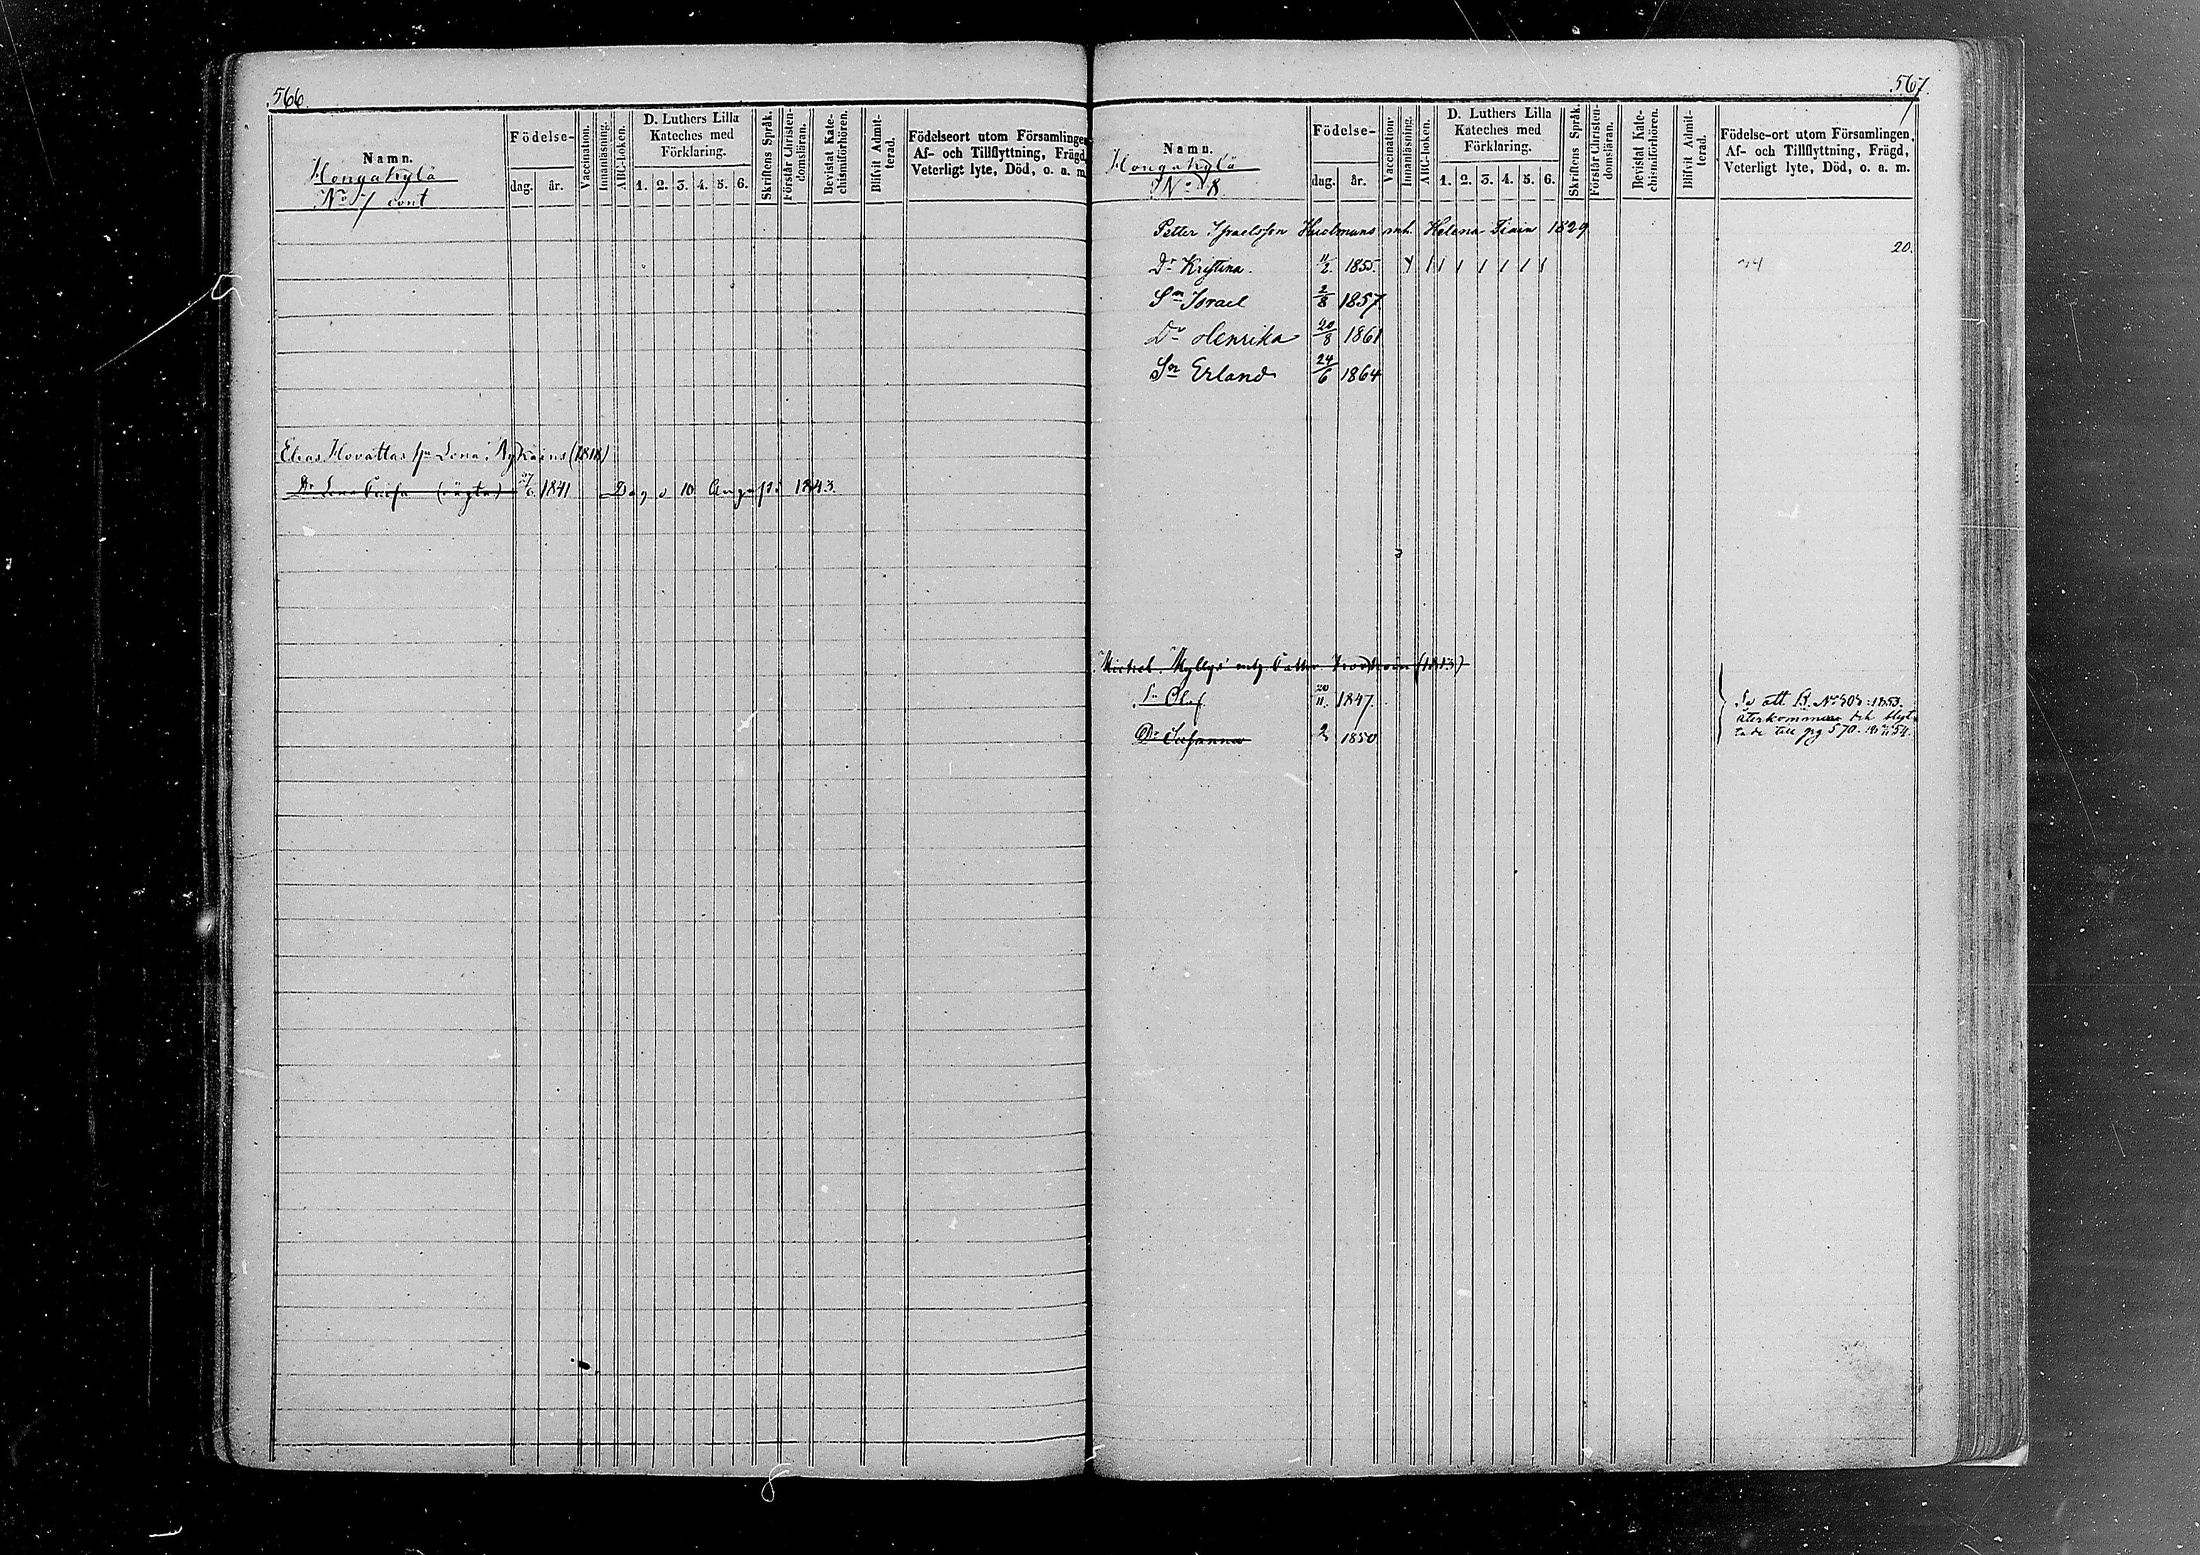 566
Namn.
Hongakylä
No 7 cont
Födelse-
dag. år.
Vaccination.
Innanläsning.
ABC-boken.
D. Luthers Lilla
Kateches med
Förklaring.
1. 2. 3. 4. 5. 6.
Skriftens Språk.
Förstår Christen-
domsläran.
Bevistat Kate-
chismiförhören.
Blifvit Admit-
terad.
Födelseort utom Församlingen
Af- och Tillflyttning, Frägd,
Veterligt lyte, Död, o. a. m.
Elias Hovattas Lena (1818)
Dr Lena 1841 Död d 10 Augusti 1843.
567
Namn.
Hongakylä
No 8
Födelse-
dag. år.
Vaccination
Innanläsning.
ABC-boken.
D. Luthers Lilla
Kateches med
Förklaring.
1. 2. 3. 4. 5. 6.
Skriftens Språk.
Förstår Christen-
domsläran.
Bevistat Kate-
chismiförhören.
Blifvit Admit-
terad.
Födelse-ort utom Församlingen,
Af- och Tillflyttning, Frägd,
Veterligt lyte, Död, o. a. m.
Petter Israelsson Helena 1829
20.
Dr Kristina. 11/2 1855.
Sn Israel 2/8 1857
Dr Henrika 20/8 1861
Sn Erland 24/6 1864
Michel Myllys
Sn Olof 20/11 1847.
Dr Susanna 2 1850
Se att 1853.
återkommne och flyt-
tade till pg 570